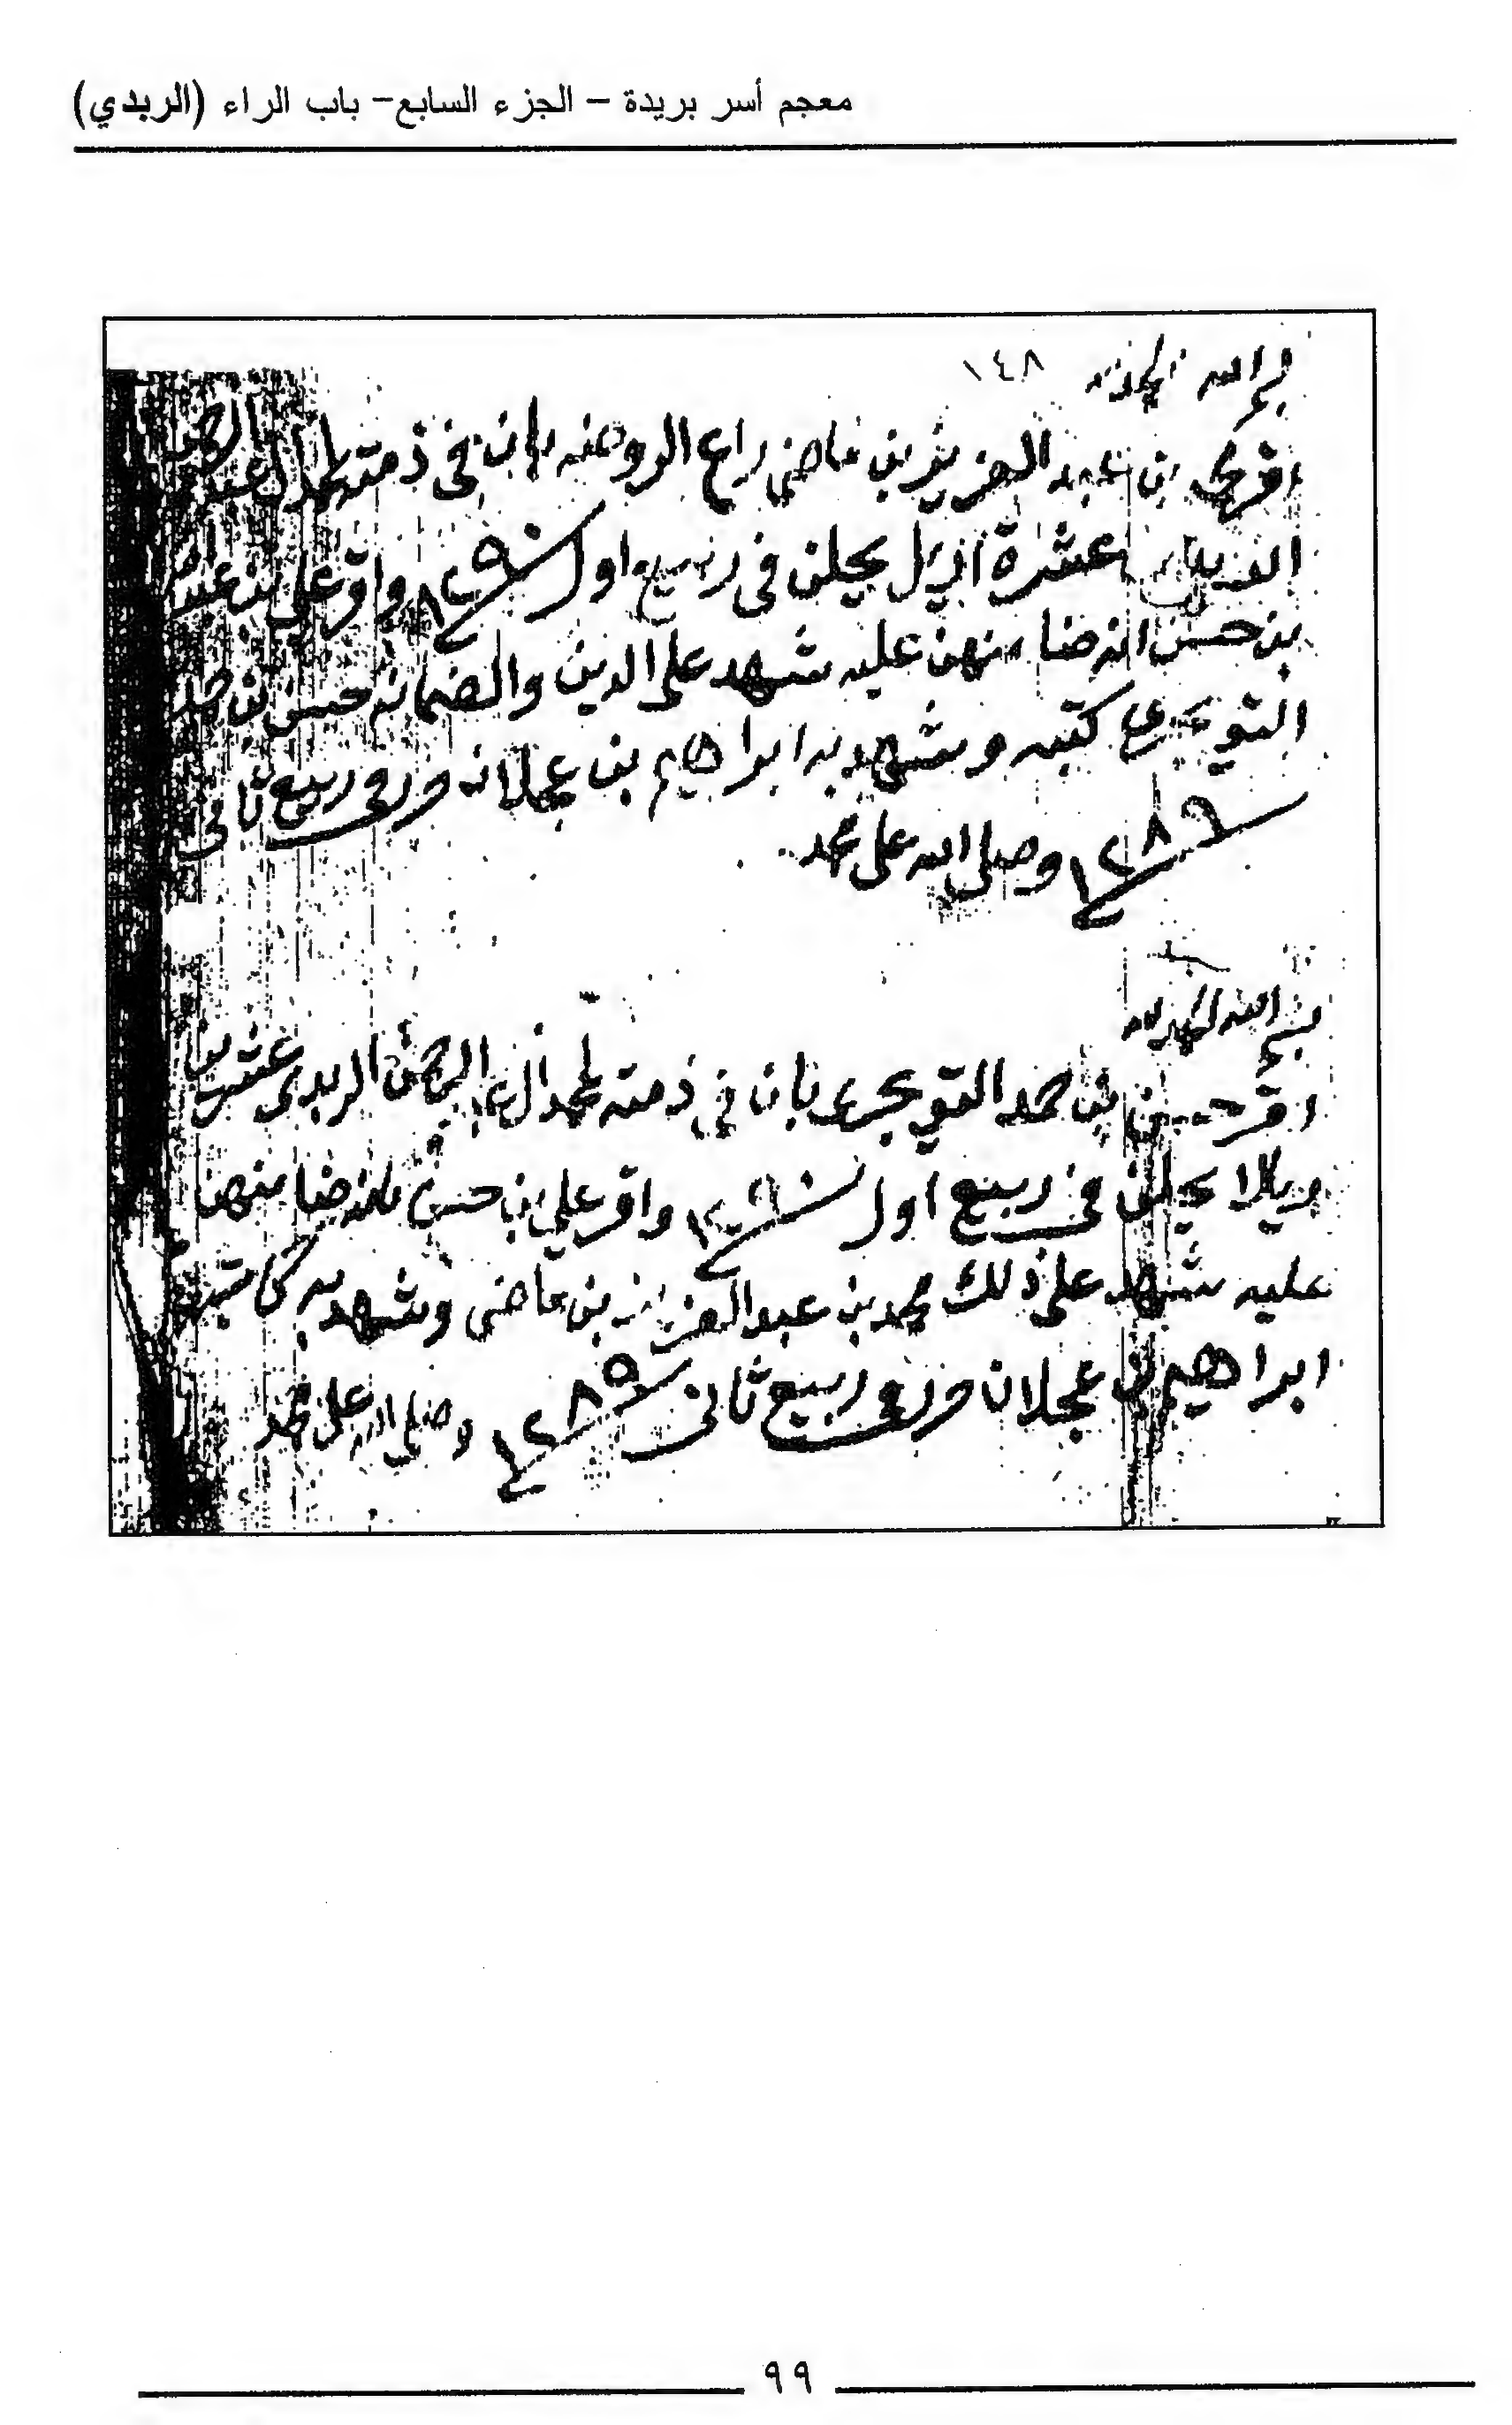 معجم أسر بريدة – الجزء السابع– باب الراء (الربدي)
بسم الله الحمد لله ١٤٨
اقر محمد بن عبد العزيز بن ماضي راع الروضه بان في ذمته لمحمد ال عبد الرحمن
الربدي عشرة اريل يحلن في ربيع اول سنة ١٢٩٠ واقر علي بن
بن حسن انه ضامنهن عليه شهد على الدين والضمانه حسن بن حمد
التويجري كتبه وشهد به ابراهيم بن عجلان حرر في ربيع ثاني
١٢٨٩ وصلى الله على محمد
بسم الله الحمد لله
اقر حسن بن حمد التويجري بان في ذمته لمحمد ال عبد الرحمن الربدي عشرين
ريالا يحلن في ربيع اول سنة ١٢٩٠ واقر علي بن حسن بانه ضامنهن
عليه شهد على ذلك محمد بن عبد العزيز بن ماضي وشهد به كاتبه
ابراهيم بن عجلان حرر في ربيع ثاني ١٢٨٩ وصلى الله على محمد
٩٩